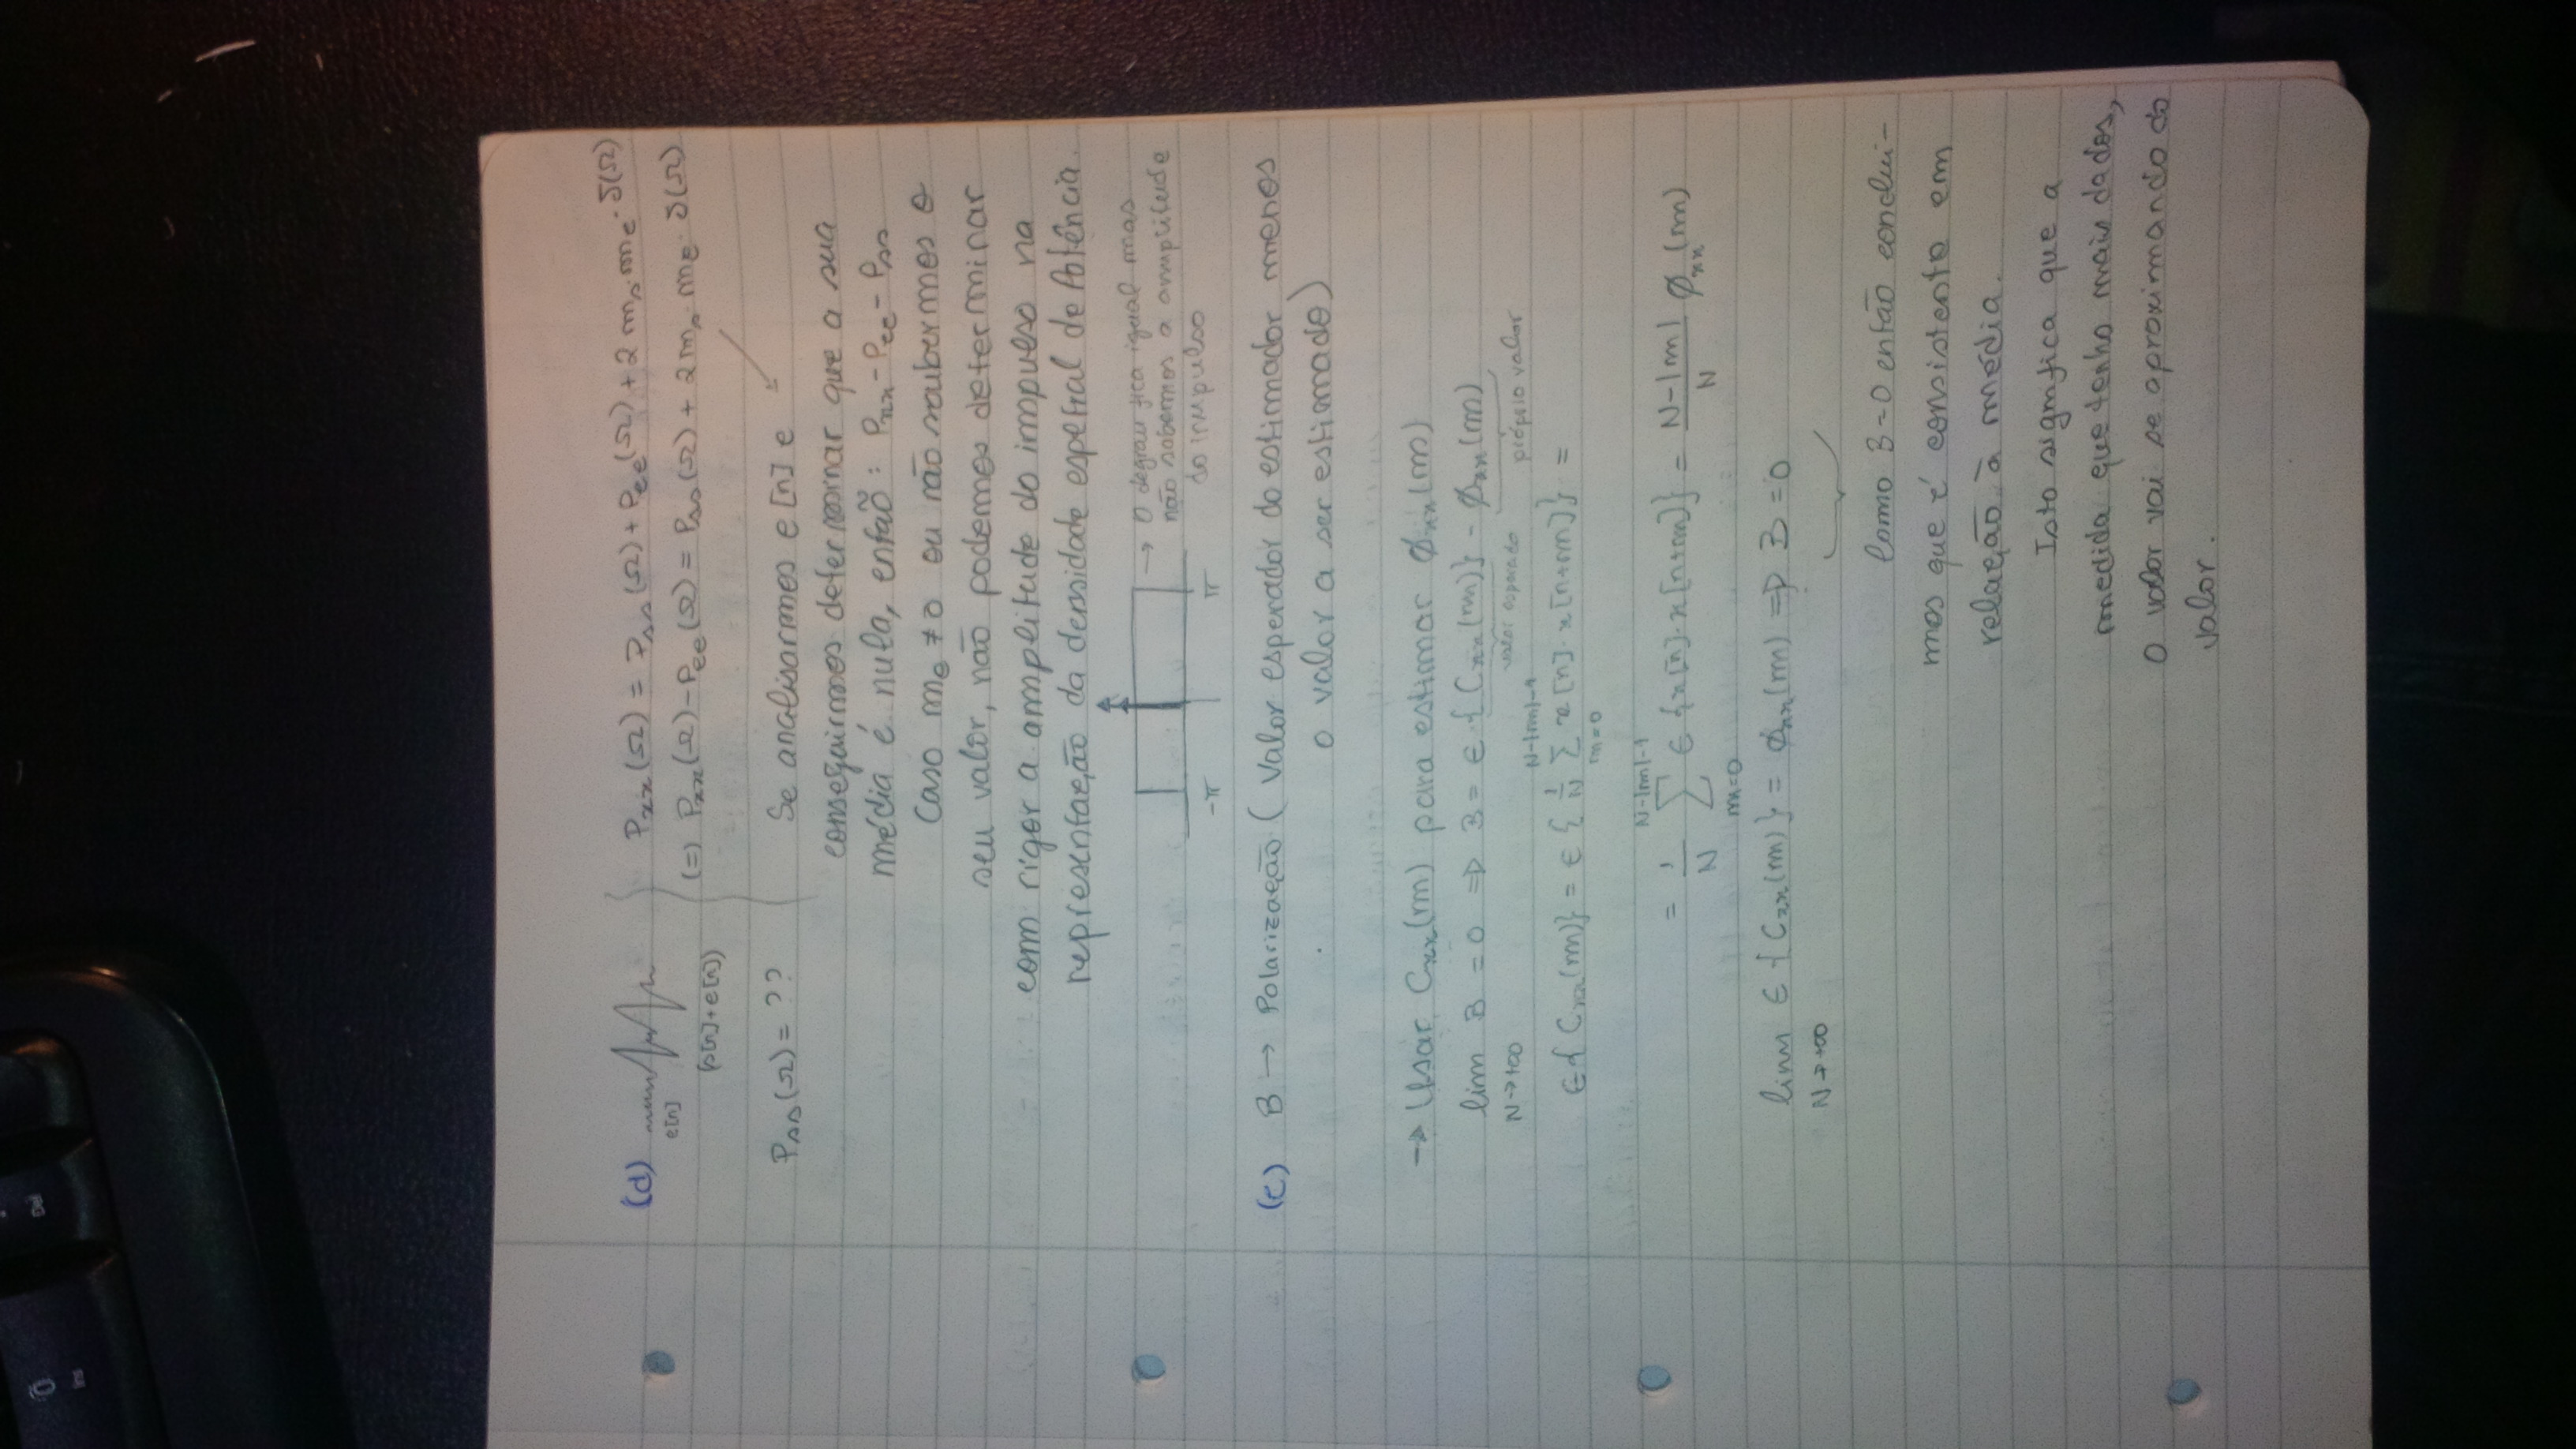 Õ
Ins
Del
(d)
e[n]
(s[n]+e[n])
Pss(Ω) = ??
Pxx(Ω) = Pss(Ω) + Pee(Ω) + 2 ms·me·δ(Ω)
(=) Pxx(Ω) - Pee(Ω) = Pss(Ω) + 2ms·me·δ(Ω)
Se analisarmos e[n] e
conseguirmos determinar que a sua
média é nula, então: Pxx - Pee - Pss
Caso me ≠ 0 ou não soubermos o
seu valor, não podemos determinar
com rigor a amplitude do impulso na
representação da densidade espetral de Potência.
→ O degrau fica igual mas
não sabemos a amplitude
do impulso
-π π
(e) B → Polarização (Valor esperador do estimador menos
o valor a ser estimado)
→ Usar Cxx(m) para estimar ϕxx(m)
lim B = 0 => B = ε{Cxx(m)} - ϕxx(m)
N→+∞ valor esperado próprio valor
N-|m|-1
ε{Cxx(m)} = ε{1/N Σ x[n]·x[n+m]} =
m=0
N-|m|-1
= 1/N Σ ε{x[n]·x[n+m]} = N-|m|/N ϕxx(m)
m=0
lim ε{Cxx(m)} = ϕxx(m) => B = 0
N→+∞
Como B=0 então conclui-
mos que é consistente em
relação à média.
Isto significa que a
medida que tenho mais dados,
o valor vai se aproximando do
valor.